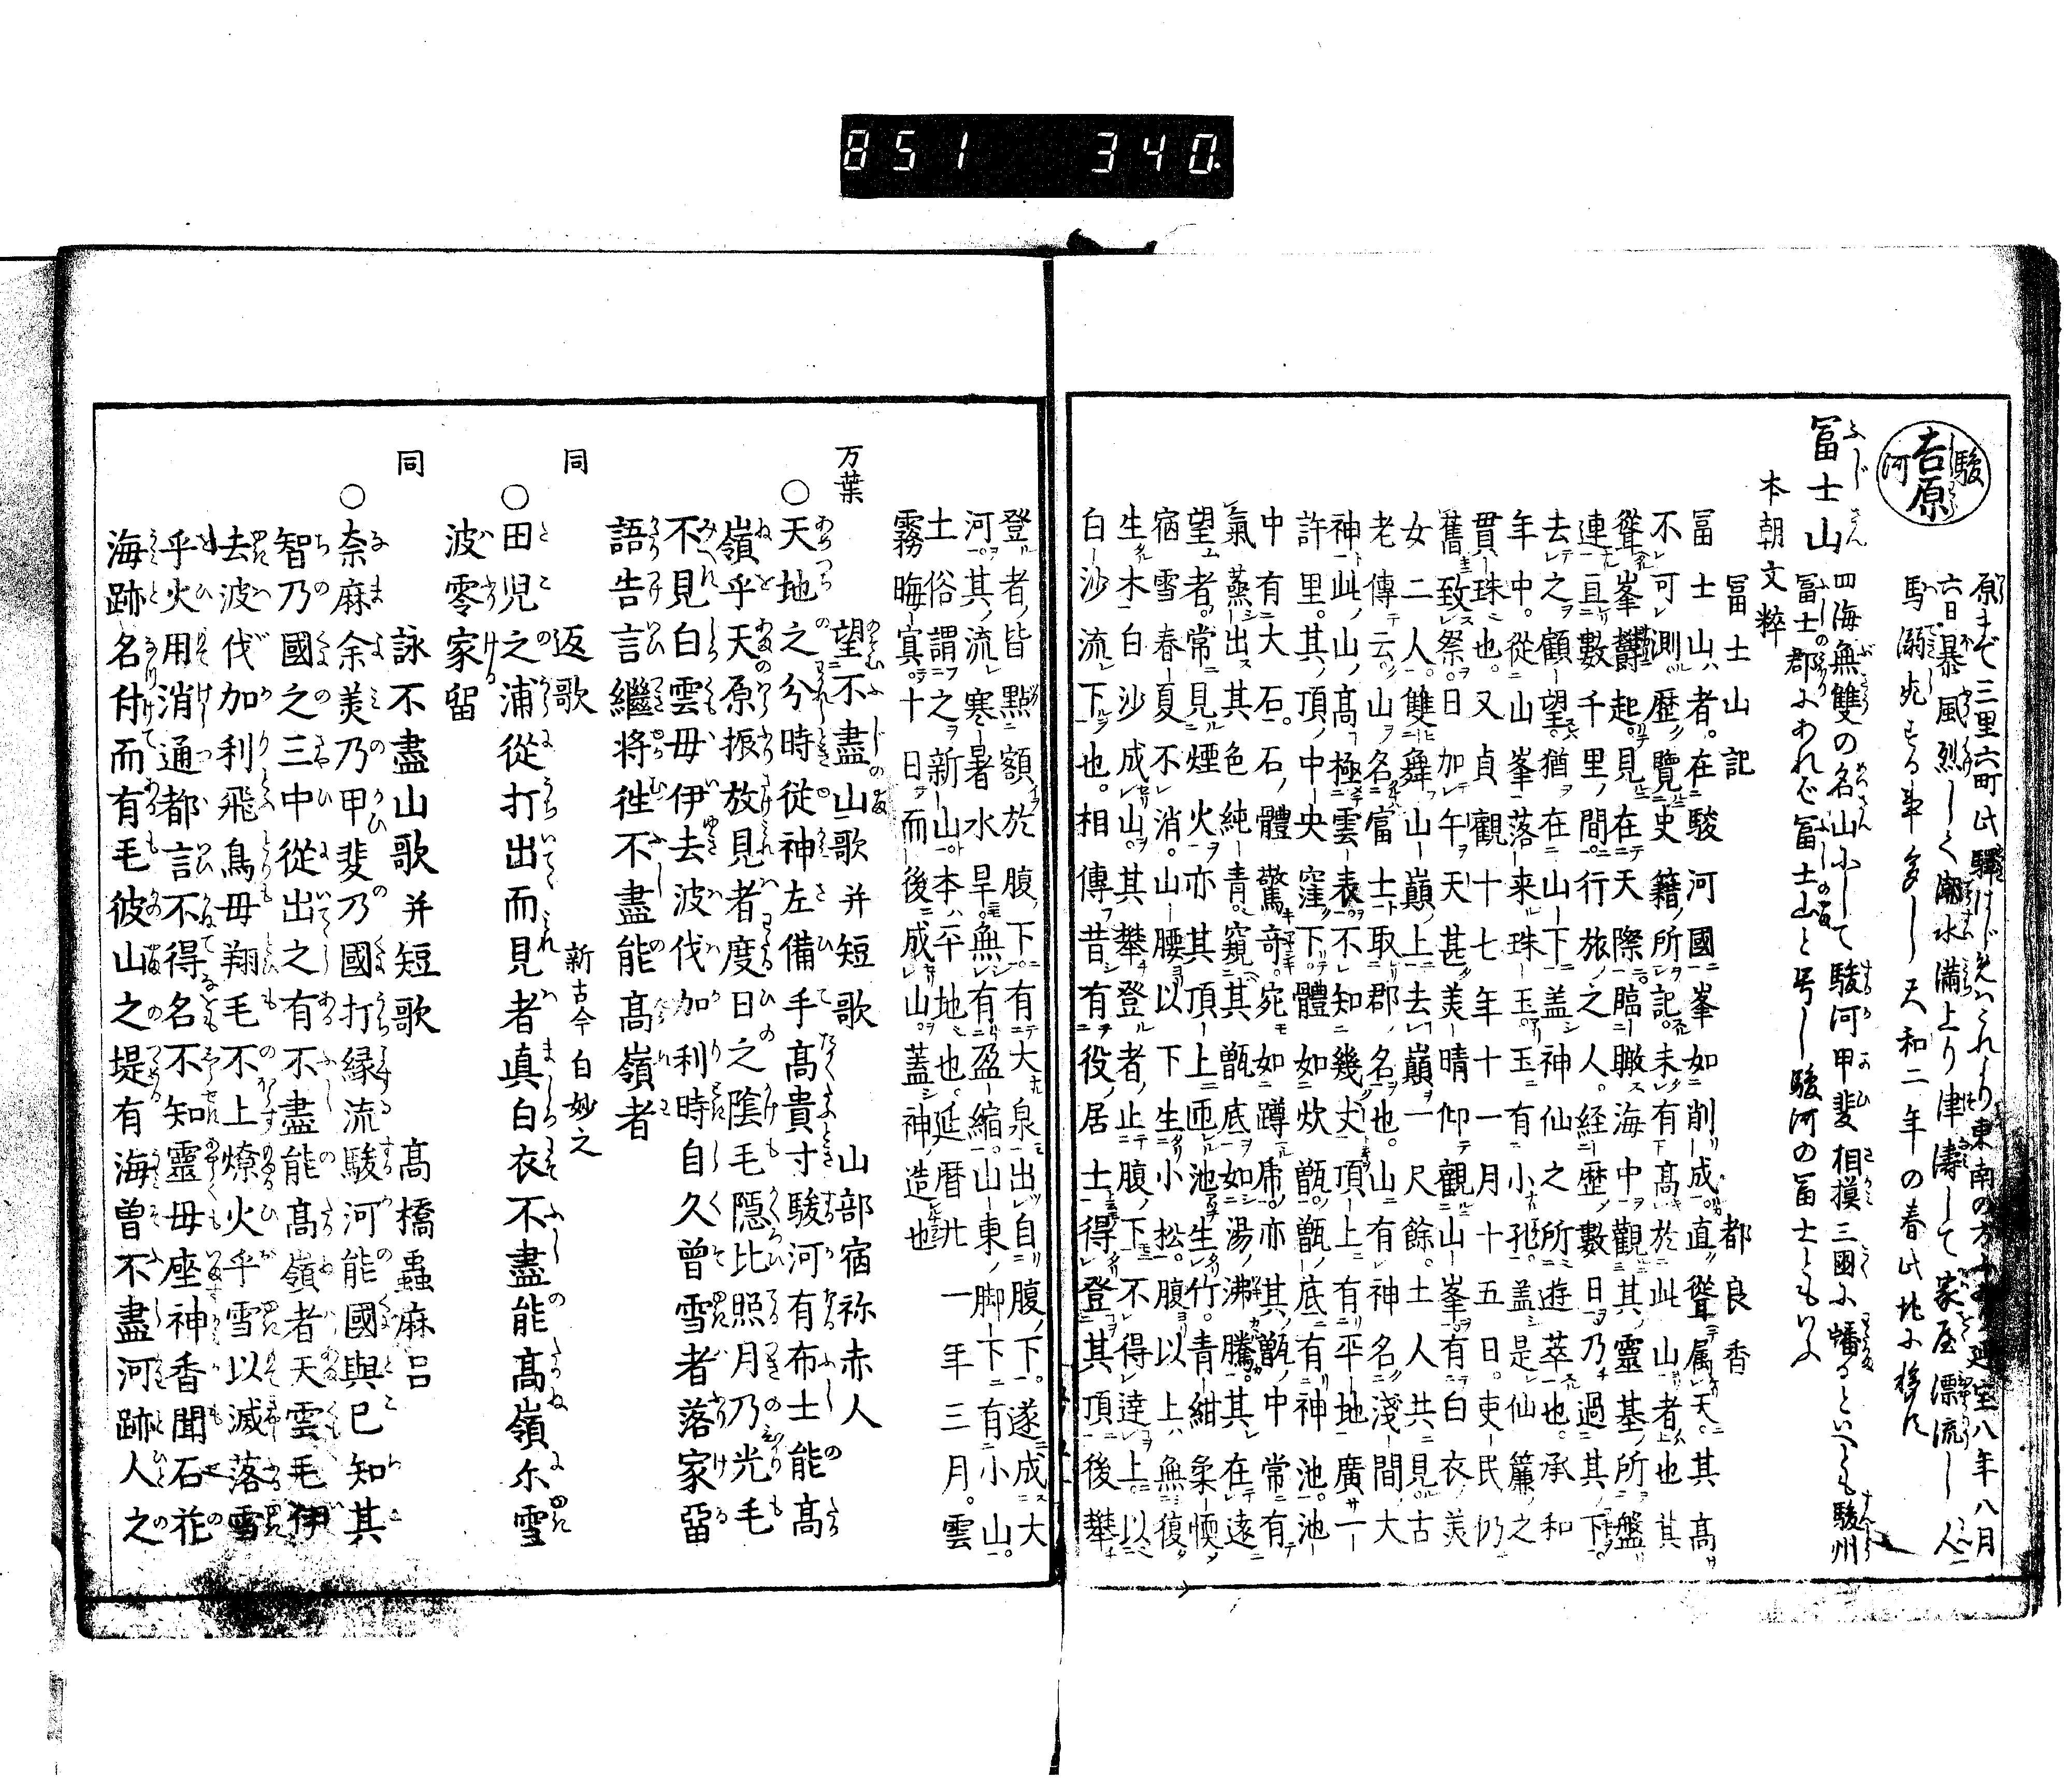 851 340.
駿河 吉原
原まで三里六町此驛はじめハこれより東南の方にあり延宝八年八月
六日暴風烈しく潮水満上り津濤して家屋漂流し人
馬溺死する事多し天和二年の春此地に移る
冨士山 四海無雙の名山にして駿河甲斐相摸三國に蟠るといへども駿州
冨士郡にあれバ冨士山と号し駿河の冨士ともいふ
本朝文粹
冨士山記 都良香
冨士山者。在駿河國峯如削成。直聳属天。其髙
不可測。歴覽史籍所記。未有髙於此山者也其
聳峯欝起。見在天際臨瞰海中觀其靈基所盤
連亘數千里間。行旅之人。経歴數日乃過其下。
去之顧望。猶在山下盖神仙之所遊萃也。承和
年中。從山峯落来珠玉。玉有小孔。盖是仙簾之
貫珠也。又貞觀十七年十一月十五日。吏民仍
舊致祭。日加午天甚美晴仰觀山峯有白衣美
女二人。雙舞山巓上去巓一尺餘。土人共見古
老傳云。山名冨士取郡名也。山有神名淺間大
神此山髙極雲表不知幾丈頂上有平地廣一
許里。其頂中央窪下。體如炊甑。甑底有神池。池
中有大石。石體驚奇。宛如蹲乕。亦其甑中常有
氣蒸出其色純青。窺其甑底如湯沸騰。其在遠
望者。常見煙火亦其頂上匝池生竹。青紺柔愞
宿雪春夏不消。山腰以下生小松。腹以上無復
生木白沙成山。其攀登者止腹下不得達上。以
白沙流下也。相傳昔有役居士得登其頂後攀
登者皆點額於腹下。有大泉出自腹下。遂成大
河。其流寒暑水旱。無有盈縮。山東脚下有小山。
土俗謂之新山。本平地也。延暦廿一年三月。雲
霧晦冥。十日而後成山。蓋神造也
万葉 望不盡山歌并短歌 山部宿祢赤人
○天地之分時従神左備手髙貴寸駿河有布士能髙
嶺乎天原振放見者度日之陰毛隠比照月乃光毛
不見白雲母伊去波伐加利時自久曾雪者落家畱
語告言繼将徃不盡能髙嶺者
同 返歌 新古今白妙之
○田児之浦從打出而見者真白衣不盡能髙嶺尓雪
波零家留
同 詠不盡山歌并短歌 髙橋蟲麻呂
○奈麻余美乃甲斐乃國打縁流駿河能國與己知其
智乃國之三中從出之有不盡能髙嶺者天雲毛伊
去波伐加利飛鳥母翔毛不上燎火乎雪以滅落雪
乎火用消通都言不得名不知靈母座神香聞石花
海跡名付而有毛彼山之堤有海曾不盡河跡人之